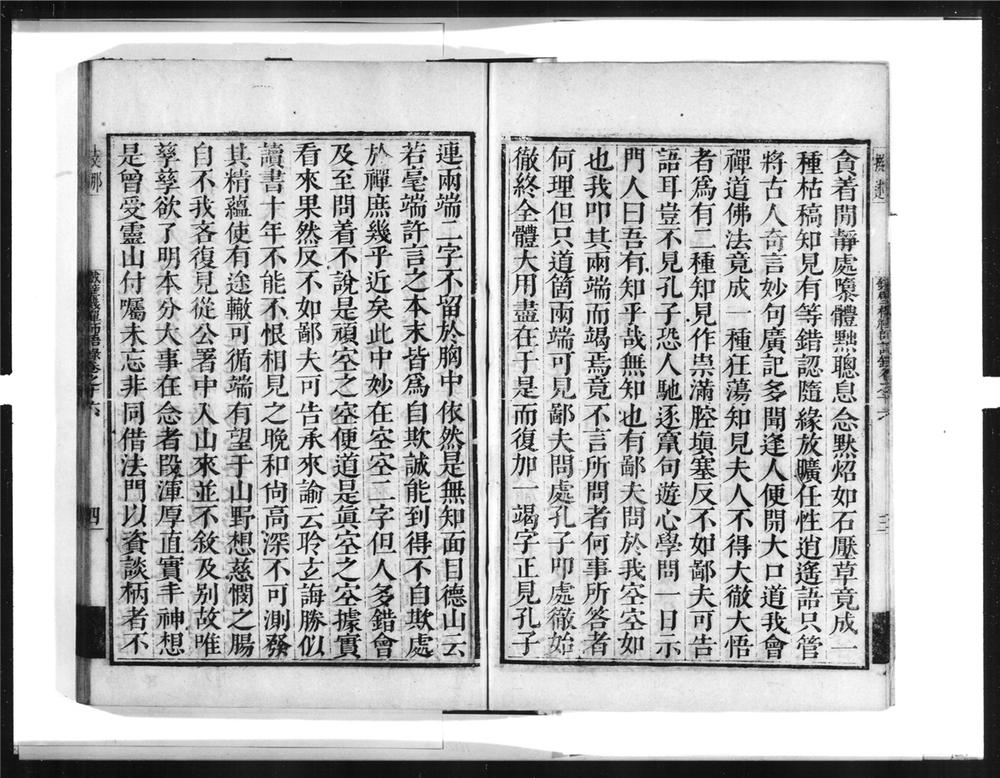 貪着閒靜處隳體黜聰息念默炤如石壓草竟成一
種枯稿知見有等錯認隨緣放曠任性逍遙語只管
將古人奇言妙句廣記多聞逢人便開大口道我會
禪道佛法竟成一種狂蕩知見夫人不得大徹大悟
者爲有二種知見作祟滿腔塡塞反不如鄙夫可告
語耳豈不見孔子恐人馳逐窠句遊心學問一日示
門人曰吾有知乎哉無知也有鄙夫問於我空空如
也我叩其兩端而竭焉竟不言所問者何事所答者
何理但只道箇兩端可見鄙夫問處孔子叩處徹始
徹終全體大用盡在于是而復加一竭字正見孔子
三
連兩端二字不留於胸中依然是無知面目德山云
若毫端許言之本末皆爲自欺誠能到得不自欺處
於禪庶幾乎近矣此中妙在空空二字但人多錯會
及至問着不說是頑空之空便道是眞空之空據實
看來果然反不如鄙夫可告承來諭云聆玄誨勝似
讀書十年不能不恨相見之晚和尙高深不可測發
其精蘊使有途轍可循端有望于山野想慈憫之腸
自不我吝復見從公署中入山來並不敘及别故唯
孳孳欲了明本分大事在念者段渾厚直實丰神想
是曾受靈山付囑未忘非同借法門以資談柄者不
四